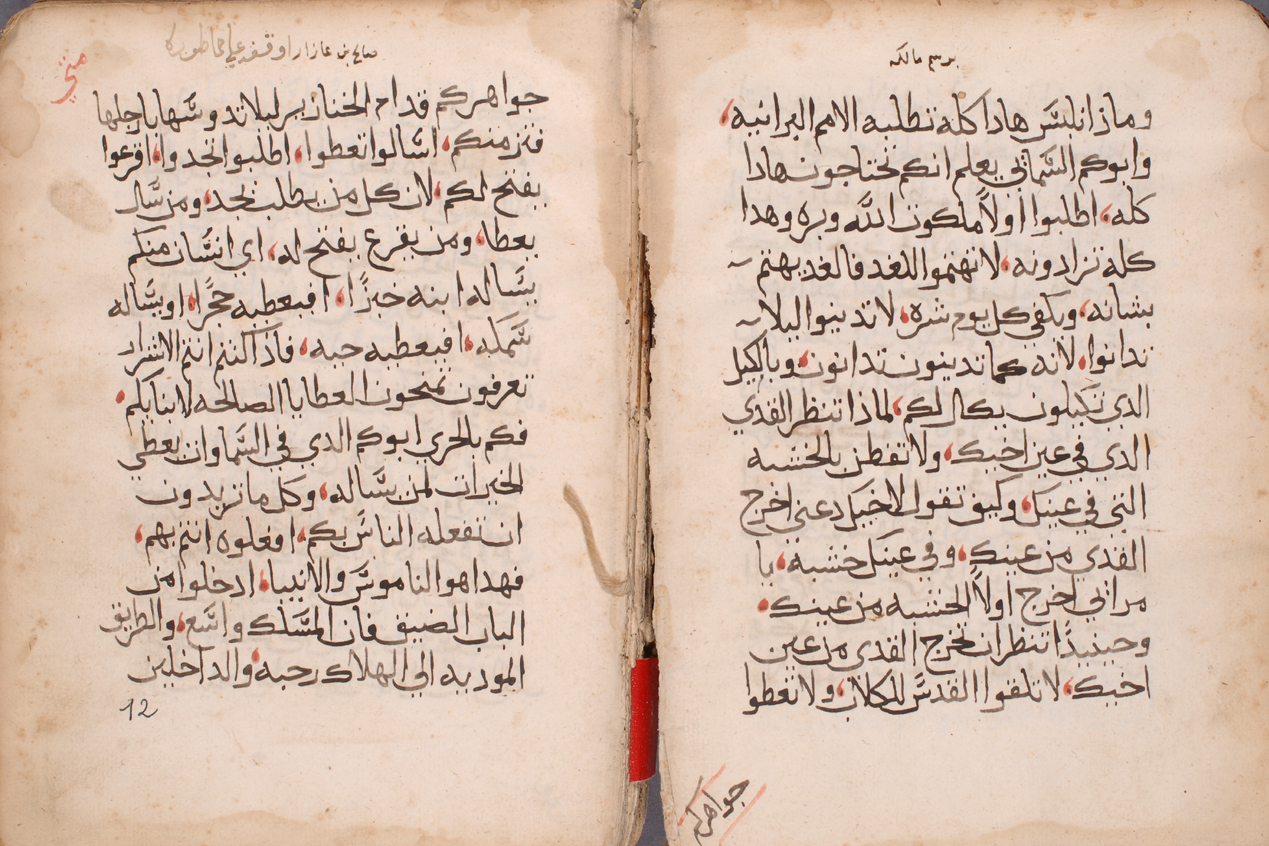 برسم مالكه
وماذا نلبس هاذا كله تطلبه الامم البرانيه،
وابوكم السماني يعلم انكم تحتاجون هاذا
كله، اطلبوا اولاً ملكوت الله وبره وهدا
كله تزادونه، لا تهتموا للغد فالغد يهتم
بشانه، ويكفي كل يوم شره، لا تدينوا ليلا
تدانوا، لانه كما تدينون تدانون، وبالكيل
الدي تكيلون يكال لكم، لماذا تنظر القدي
الدي في عين اخيك، ولا تفطن بالخشبه
التي في عينك، وكيف تقول لاخيك دعني اخرج
القدي من عينك، وفي عينك خشبه، يا
مراني اخرج اولاً الخشبه من عينك،
وحينيذًا تنظر ان تخرج القدي من عين
اخيك، لا تلقوا القدس للكلاب، ولا تعطوا
جواهركم
صالح بن عازار اوقفه علي
متي
جواهركم قدام الخنازير ليلا تدوسها بارجلها
فتزمنكم، اسالوا تعطوا، اطلبوا تجدوا، اقرعوا
يفتح لكم، لان كل من يطلب يجد، ومن سال
يعطا، ومن يقرع يفتح له، اي انسان منكم
يساله ابنه خبزًا، افيعطيه حجرًا، او يساله
سمكه، افيعطيه حيه، فاذا كنتم انتم الاشرار
تعرفون تمنحون العطايا الصالحه لابنايكم،
فكم بالحري ابوكم الدي في السماوات يعطي
الخيرات لمن يساله، وكل ما تريدون
ان تفعله الناس بكم، افعلوه انتم بهم،
فهدا هو الناموس والانبيا، ادخلوا من
الباب الضيق فان المسلك واسع، والطريق
الموديه الي الهلاك رحبه، والداخلين
12